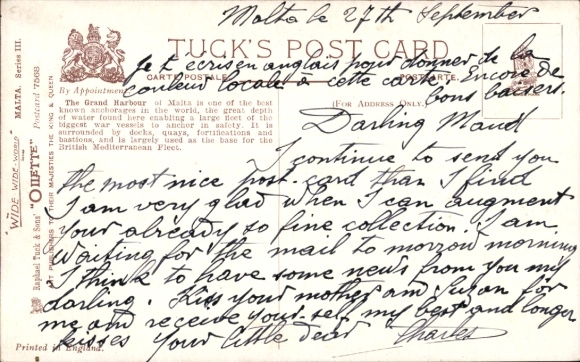 Malta le 27th September
Je t'écris en anglais pour donner de la
couleur locale à cette carte. Encore de
bons baisers.
TUCK'S POST CARD
CARTE POSTALE
POSTKARTE
By Appointment
(FOR ADDRESS ONLY.)
The Grand Harbour of Malta is one of the best
known anchorages in the world, the great depth
of water found here enabling a large fleet of the
biggest war vessels to anchor in safety. It is
surrounded by docks, quays, fortifications and
bastions, and is largely used as the base for the
British Mediterranean Fleet.
Darling Maud
I continue to send you
the most nice post-card than I find
I am very glad when I can augment
your already so fine collection. I am
waiting for the mail to morrow morning
I think to have some news from you my
darling. Kiss your mother and for
me and receive your self my best and longer
kisses Your little dear Charles
"WIDE-WIDE-WORLD"
MALTA. Series III.
Raphael Tuck & Sons' "OILETTE" Postcard 7568
ART PUBLISHERS TO THEIR MAJESTIES THE KING & QUEEN
Printed in England.